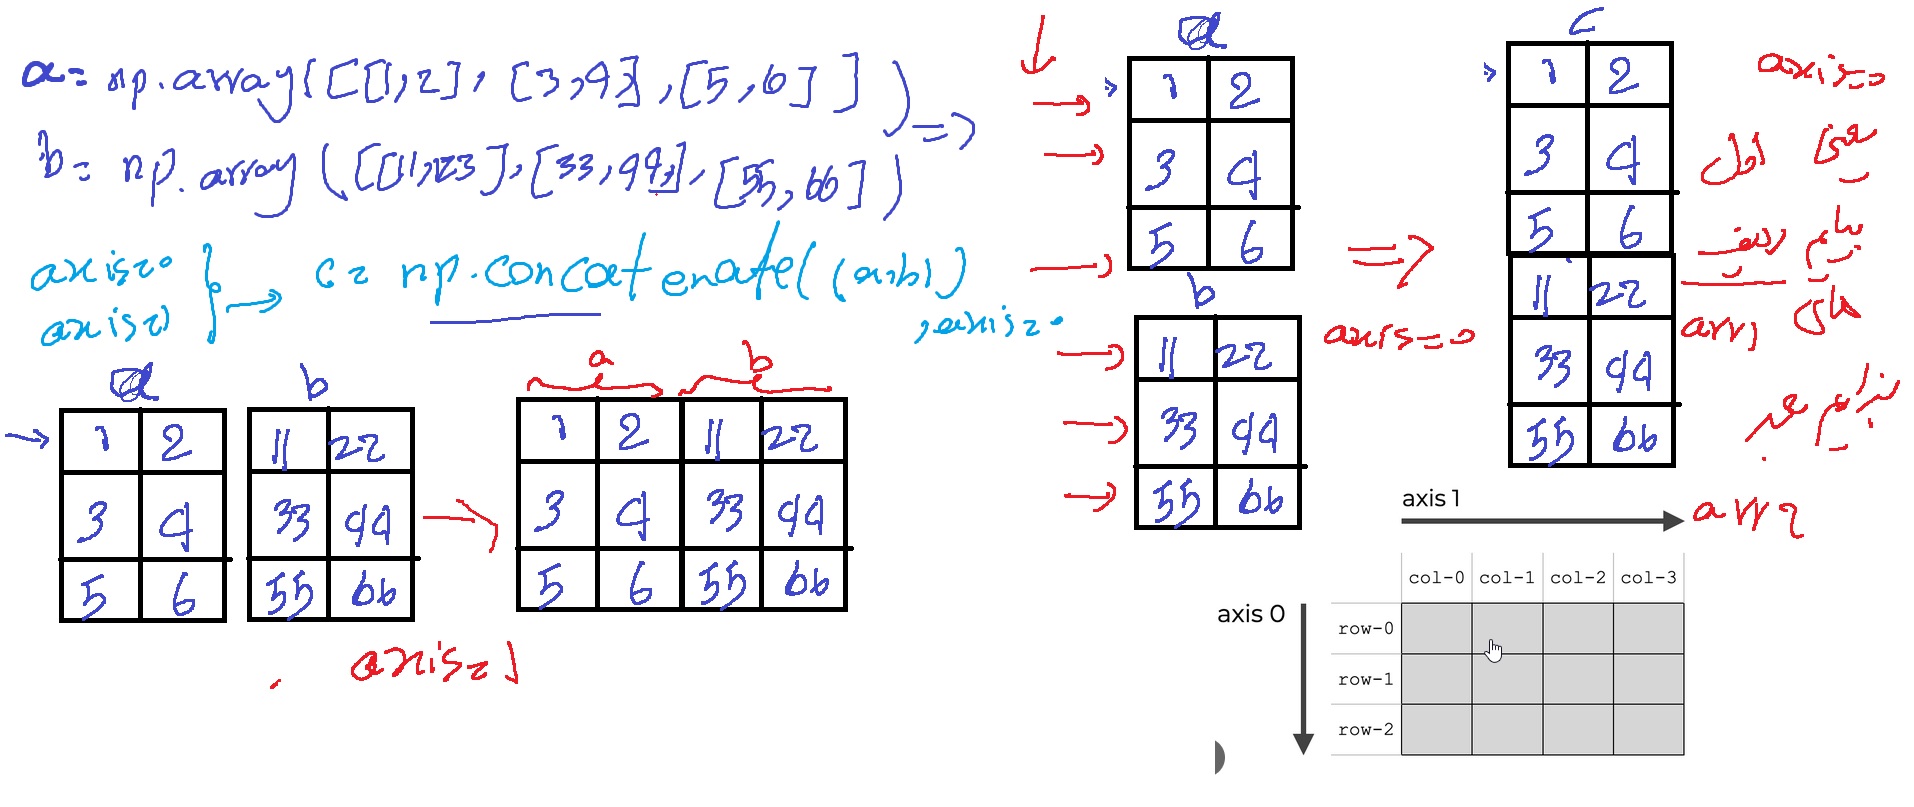 a= np.array([[1,2], [3,4], [5,6]])
b= np.array([[11,22], [33,44], [55,66]]) =>
axis=0
axis=1
c= np.concatenate((a,b)
,axis=0
a b
1 2
3 4
5 6
11 22
33 44
55 66
a b
1 2 11 22
3 4 33 44
5 6 55 66
axis=1
a
1 2
3 4
5 6
b
11 22
33 44
55 66
=>
axis==0
c
1 2
3 4
5 6
11 22
33 44
55 66
axis=0
یعنی اول
بیایم ردیف
های arr1
بذاریم
arr2
axis 1
axis 0
col-0 col-1 col-2 col-3
row-0
row-1
row-2